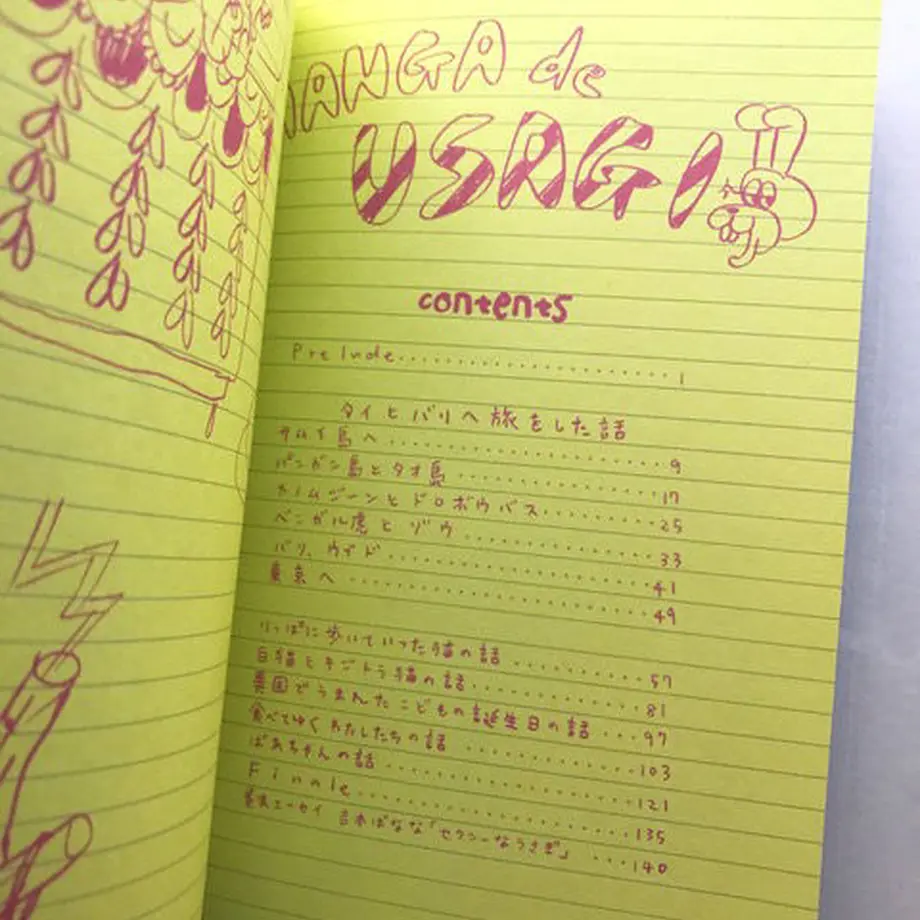 MANGA de
USAGI
contents
Prelude.....................1
タイとバリへ旅をした話
サムイ島へ.....................9
パンガン島とタオ島.....................17
カノムジーンとドロボウバス.....................25
ベンガル虎とゾウ.....................33
バリ、ウブド.....................41
東京へ.....................49
りっぱに歩いていった猫の話.....................57
白猫とキジトラ猫の話.....................81
異国でうまれたこどもの誕生日の話...97
食べてゆくわたしたちの話.....................103
ばあちゃんの話.....................121
Finale.....................135
巻末エーセイ 吉本ばなな「セクシーなうさぎ」...140